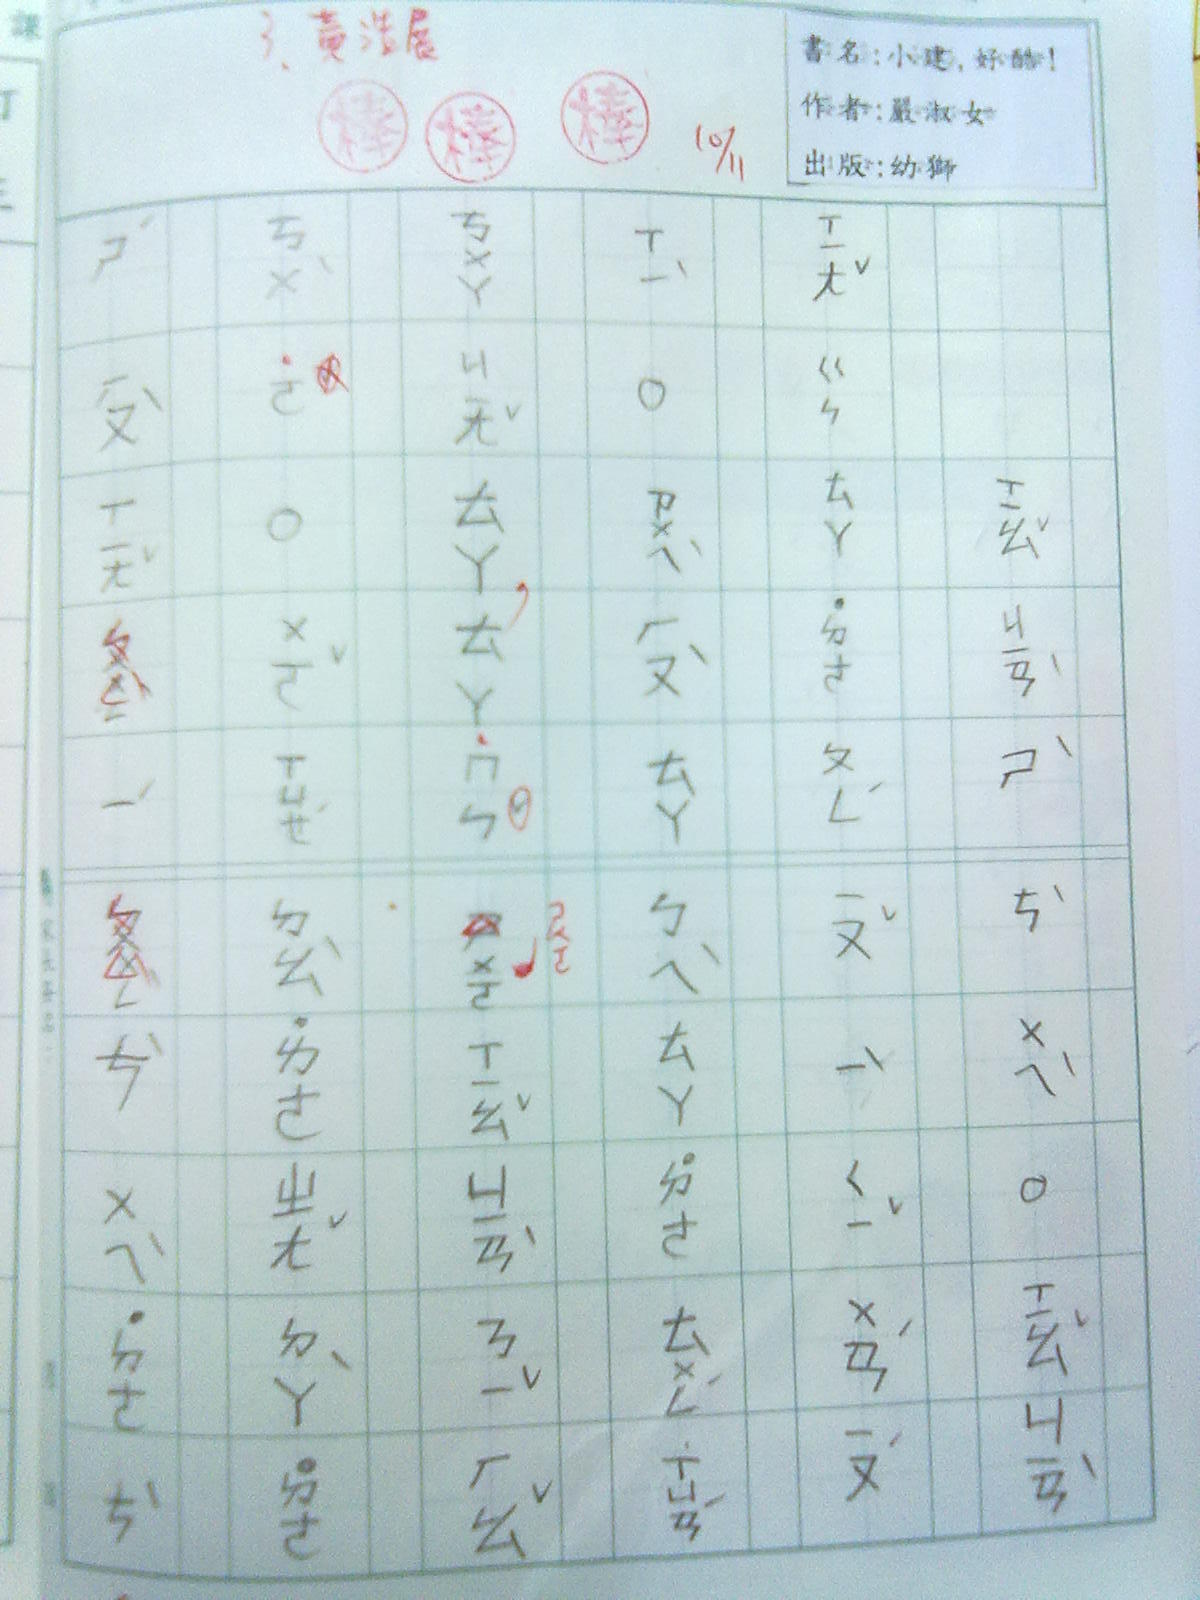 3、黃浩展
棒 棒 棒
10/11
書名：小建，好酷！
作者：嚴淑女
出版：幼獅
ㄒㄧㄠˇ ㄐㄧㄢˋ ㄕˋ ㄘˋ ㄨㄟˋ 。 ㄒㄧㄠˇ ㄐㄧㄢˋ
ㄒㄧㄤˇ ㄍㄣ ㄊㄚ ˙ㄉㄜ ㄆㄥˊ ㄧㄡˇ ㄧˋ ㄑㄧˇ ㄨㄢˊ ㄧㄡˊ
ㄒㄧˋ 。 ㄗㄨㄟˋ ㄏㄡˋ ㄊㄚ ㄅㄟˋ ㄊㄚ ˙ㄉㄜ ㄊㄨㄥˊ ㄒㄩㄢˊ
ㄎㄨㄚ ㄐㄧㄤˇ ㄊㄚ ， ㄊㄚ ˙ㄇㄣ ㄕㄨㄛ ㄒㄧㄠˇ ㄐㄧㄢˋ ㄋㄧˇ ㄏㄠˇ
ㄎㄨˋ ˙ㄛ 。 ㄨㄛˇ ㄒㄩㄝˊ ㄉㄠˋ ˙ㄉㄜ ㄓㄤˇ ㄉㄚˋ ˙ㄉㄜ
ㄕˊ ㄏㄡˋ ㄒㄧㄤˇ ㄧˊ ㄘˋ ㄨㄟˋ ˙ㄉㄜ ㄘˋ